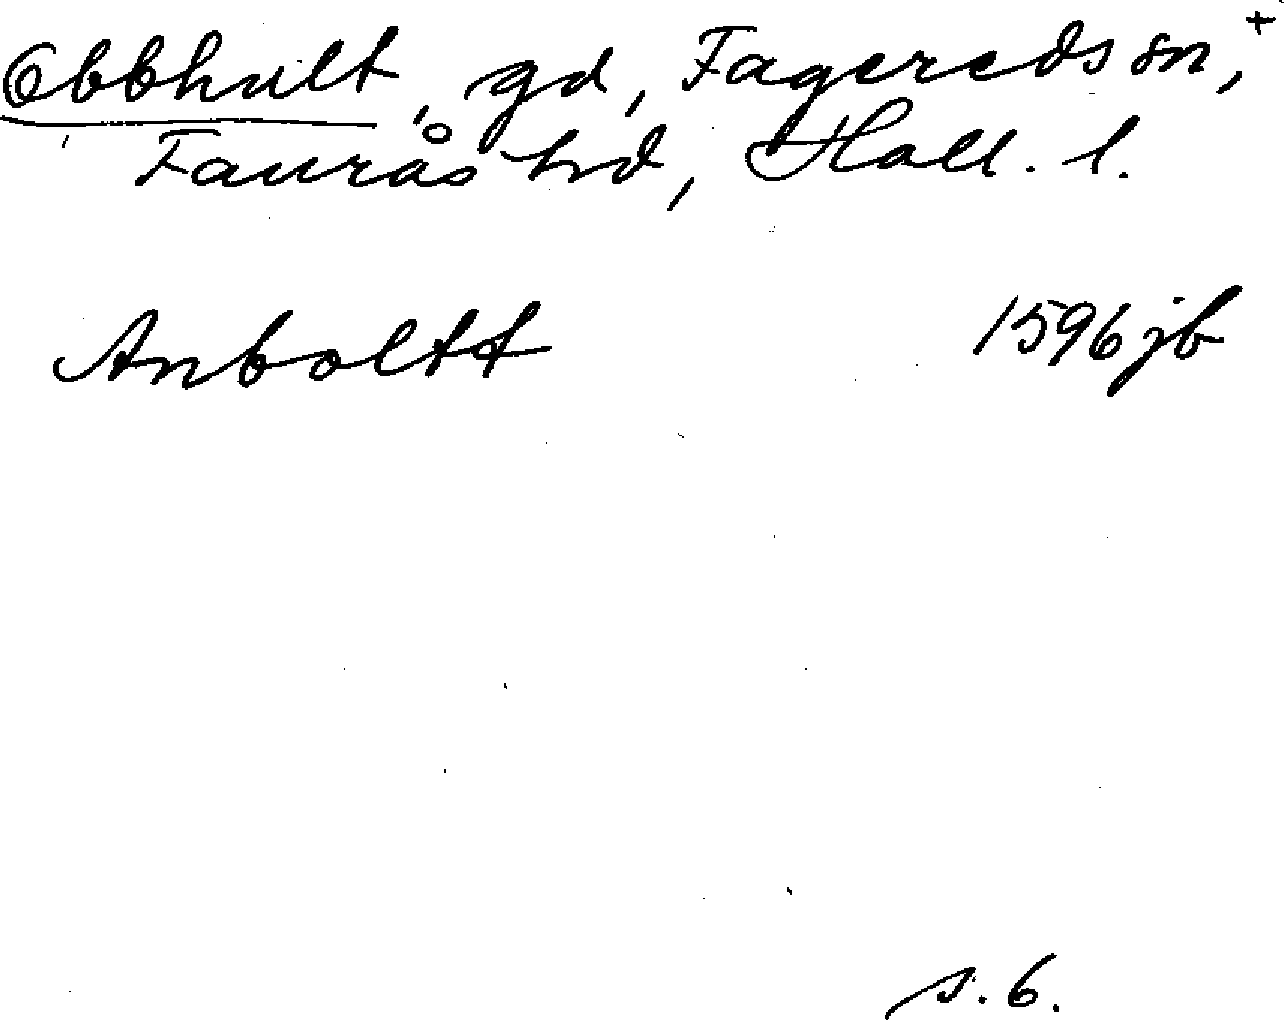 Obbhult, gd, Fagereds sn, +
Faurås hd, Hall. l.
Anboltt 1596 jb
s. 6.